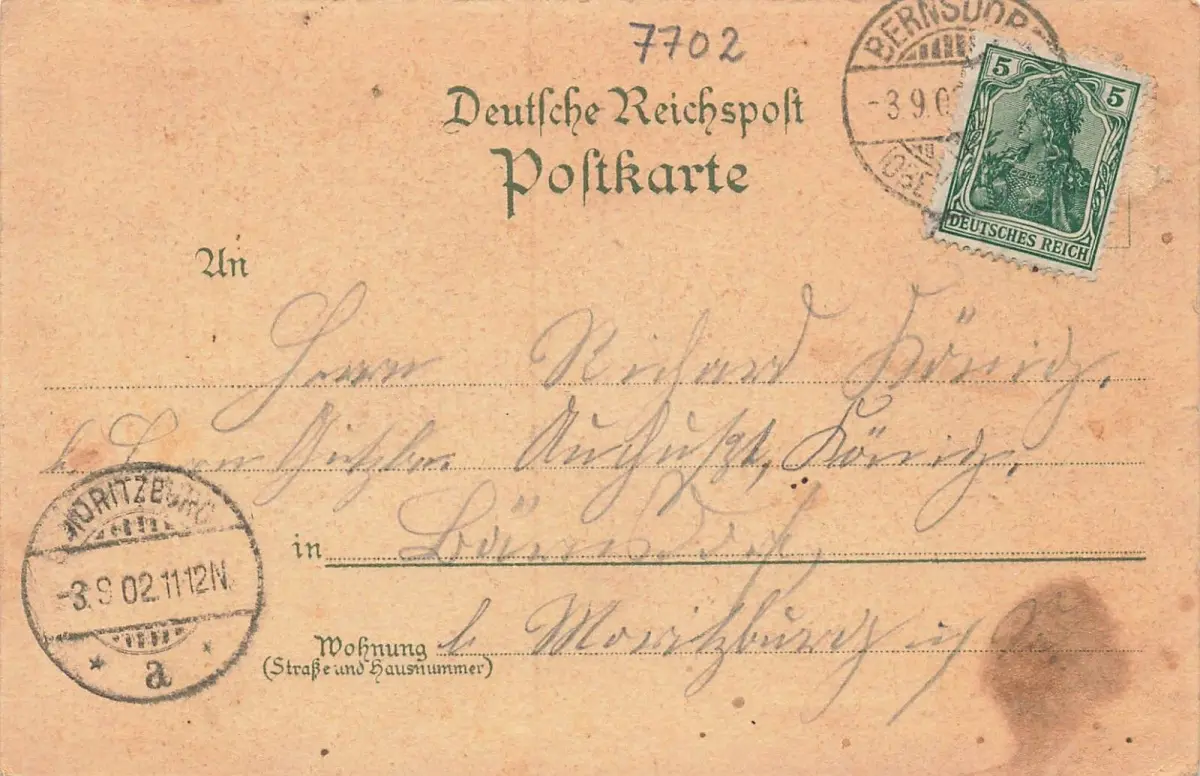 7702
BERNSDORF
-3 9 02
Deutsche Reichspost
Postkarte
5 5
DEUTSCHES REICH
An
Herrn Richard König.
b. Herrn Gutzbes. August König.
in Bärnsdorf
Wohnung b Moritzburg
(Straße und Hausnummer)
MORITZBURG
-3.9 02 11-12N.
* a *